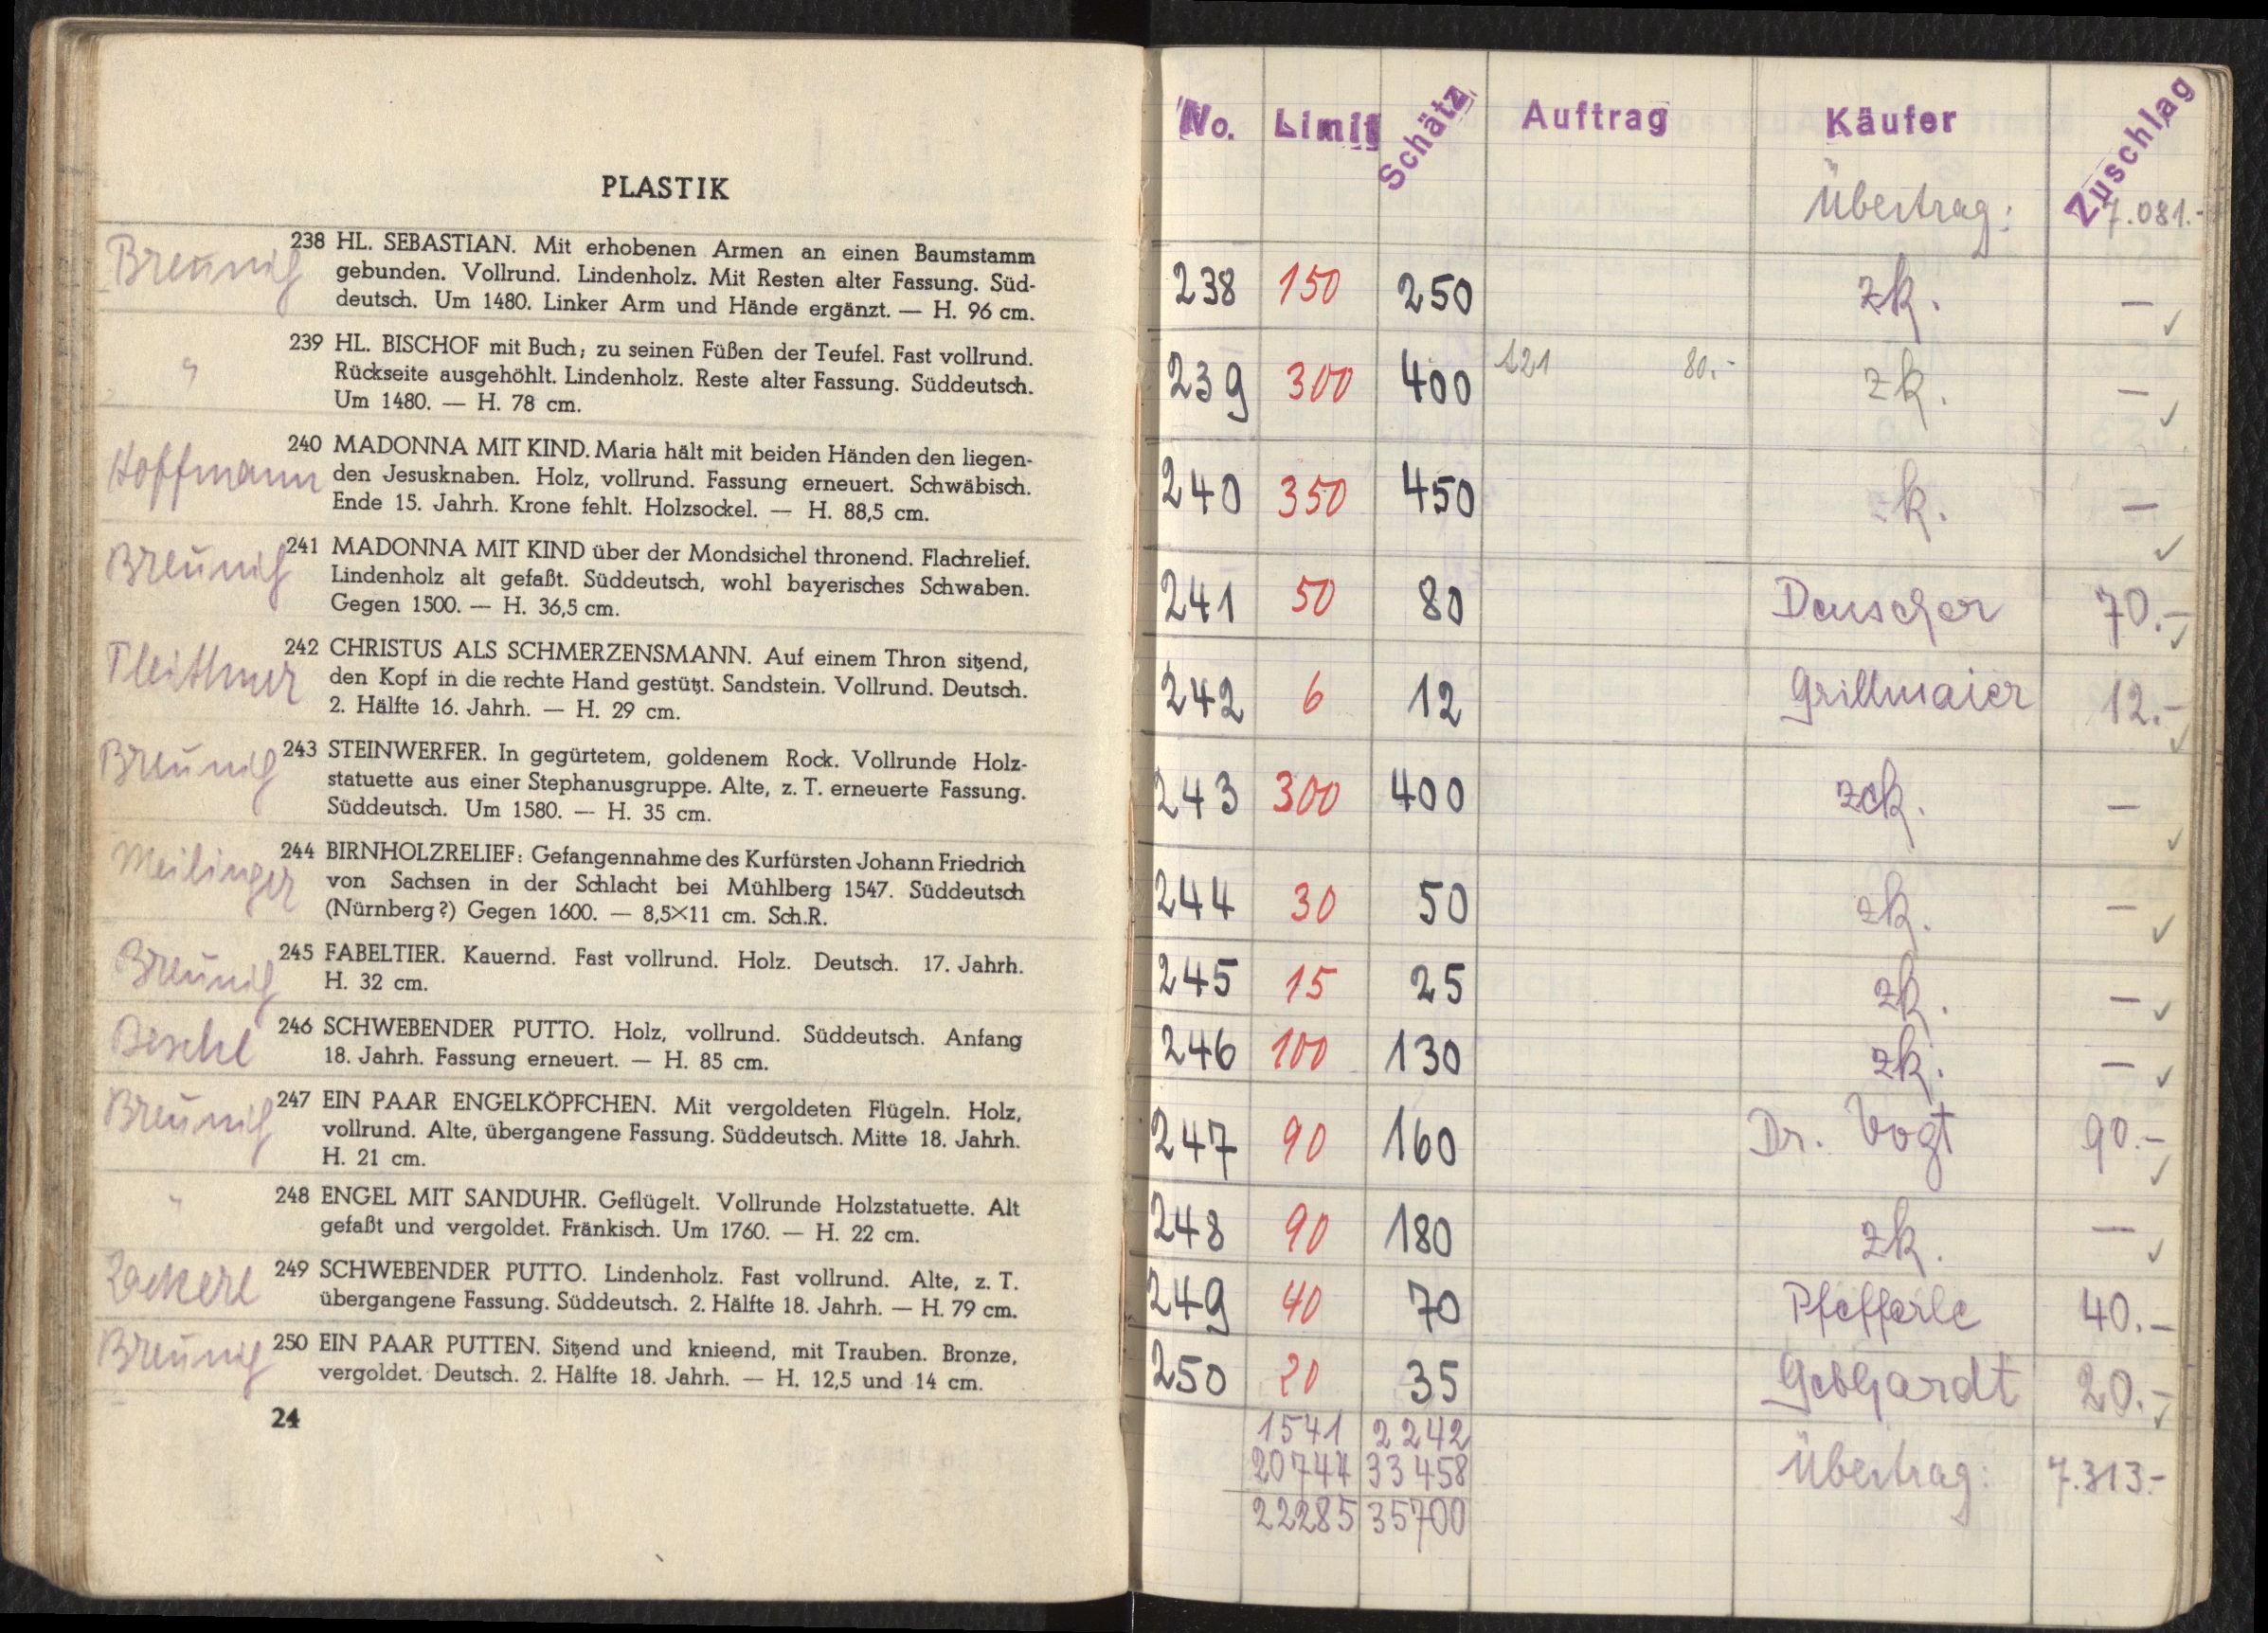 PLASTIK
Breunig
238 HL. SEBASTIAN. Mit erhobenen Armen an einen Baumstamm
gebunden. Vollrund. Lindenholz. Mit Resten alter Fassung. Süd-
deutsch. Um 1480. Linker Arm und Hände ergänzt. — H. 96 cm.
"
239 HL. BISCHOF mit Buch; zu seinen Füßen der Teufel. Fast vollrund.
Rückseite ausgehöhlt. Lindenholz. Reste alter Fassung. Süddeutsch.
Um 1480. — H. 78 cm.
Hoffmann
240 MADONNA MIT KIND. Maria hält mit beiden Händen den liegen-
den Jesusknaben. Holz, vollrund. Fassung erneuert. Schwäbisch.
Ende 15. Jahrh. Krone fehlt. Holzsockel. — H. 88,5 cm.
Breunig
241 MADONNA MIT KIND über der Mondsichel thronend. Flachrelief.
Lindenholz alt gefaßt. Süddeutsch, wohl bayerisches Schwaben.
Gegen 1500. — H. 36,5 cm.
242 CHRISTUS ALS SCHMERZENSMANN. Auf einem Thron sitzend,
den Kopf in die rechte Hand gestützt. Sandstein. Vollrund. Deutsch.
2. Hälfte 16. Jahrh. — H. 29 cm.
Breunig
243 STEINWERFER. In gegürtetem, goldenem Rock. Vollrunde Holz-
statuette aus einer Stephanusgruppe. Alte, z. T. erneuerte Fassung.
Süddeutsch. Um 1580. — H. 35 cm.
Meilinger
244 BIRNHOLZRELIEF: Gefangennahme des Kurfürsten Johann Friedrich
von Sachsen in der Schlacht bei Mühlberg 1547. Süddeutsch
(Nürnberg?) Gegen 1600. — 8,5×11 cm. Sch.R.
Breunig
245 FABELTIER. Kauernd. Fast vollrund. Holz. Deutsch. 17. Jahrh.
H. 32 cm.
246 SCHWEBENDER PUTTO. Holz, vollrund. Süddeutsch. Anfang
18. Jahrh. Fassung erneuert. — H. 85 cm.
Breunig
247 EIN PAAR ENGELKÖPFCHEN. Mit vergoldeten Flügeln. Holz,
vollrund. Alte, übergangene Fassung. Süddeutsch. Mitte 18. Jahrh.
H. 21 cm.
"
248 ENGEL MIT SANDUHR. Geflügelt. Vollrunde Holzstatuette. Alt
gefaßt und vergoldet. Fränkisch. Um 1760. — H. 22 cm.
249 SCHWEBENDER PUTTO. Lindenholz. Fast vollrund. Alte, z. T.
übergangene Fassung. Süddeutsch. 2. Hälfte 18. Jahrh. — H. 79 cm.
Breunig
250 EIN PAAR PUTTEN. Sitzend und knieend, mit Trauben. Bronze,
vergoldet. Deutsch. 2. Hälfte 18. Jahrh. — H. 12,5 und 14 cm.
24
No. Limit Schätz Auftrag Käufer Zuschlag
Übertrag: 7.081.-
238 150 250 zk. — ✓
239 300 400 121 80.- zk. — ✓
240 350 450 zk. — ✓
241 50 80 Deuscher 70.- ✓
242 6 12 Grillmaier 12.- ✓
243 300 400 zck. — ✓
244 30 50 zk. — ✓
245 15 25 zk. — ✓
246 100 130 zk. — ✓
247 90 160 Dr. Vogt 90.- ✓
248 90 180 zk. — ✓
249 40 70 Pfefferle 40.-
250 20 35 Gebhardt 20.- ✓
1541 2242
20744 33458 Übertrag: 7.313.-
22285 35700